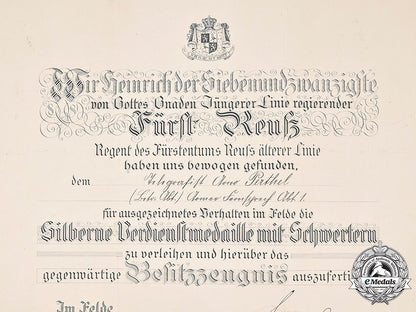 Wir Heinrich der Siebenundzwanzigste
von Gottes Gnaden Jüngerer Linie regierender
Fürst Reuß
Regent des Fürstentums Reuß älterer Linie
haben uns bewogen gefunden,
dem Telegrafist Arno
Abt. 1.
für ausgezeichnetes Verhalten im Felde die
Silberne Verdienstmedaille mit Schwertern
zu verleihen und hierüber das
gegenwärtige Besitzzeugnis auszufertig
Im Felde
eMedals